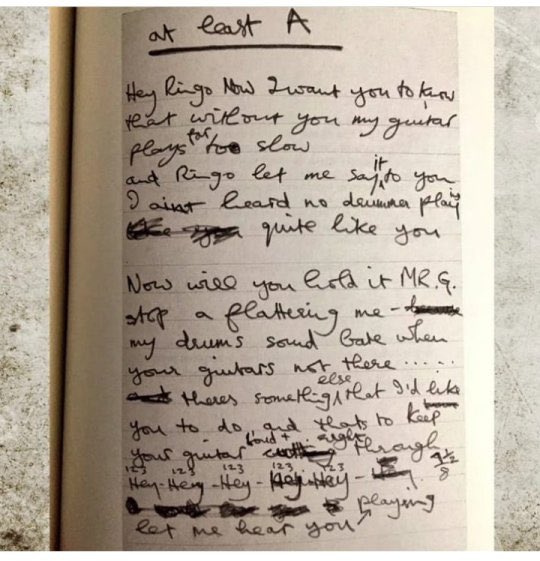 at least A
Hey Ringo Now I want you to know
that without you my guitar
plays far too slow
and Ringo let me say it to you
I aint heard no drummer play
quite like you
Now will you hold it MR. G.
stop a flattering me
my drums sound bare when
your guitars not there ......
theres something else that I'd like
you to do, and thats to keep
your guitar loud + through
123 123 123 123 123
Hey-Hey-Hey-Hey-Hey-
let me hear you playing